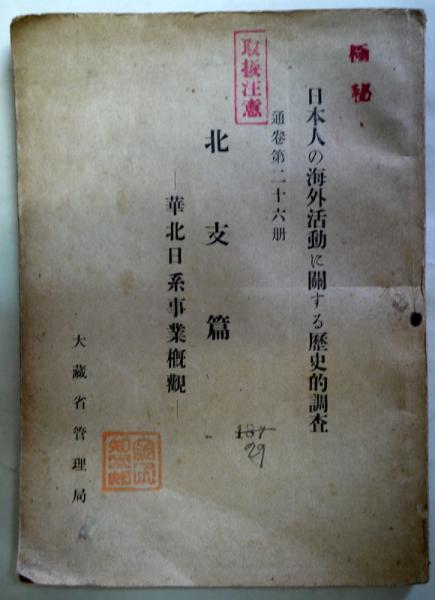 極秘
取扱注意
日本人の海外活動に關する歷史的調査
通卷第二十六册
北支篇
―華北日系事業概觀―
大藏省管理局
29